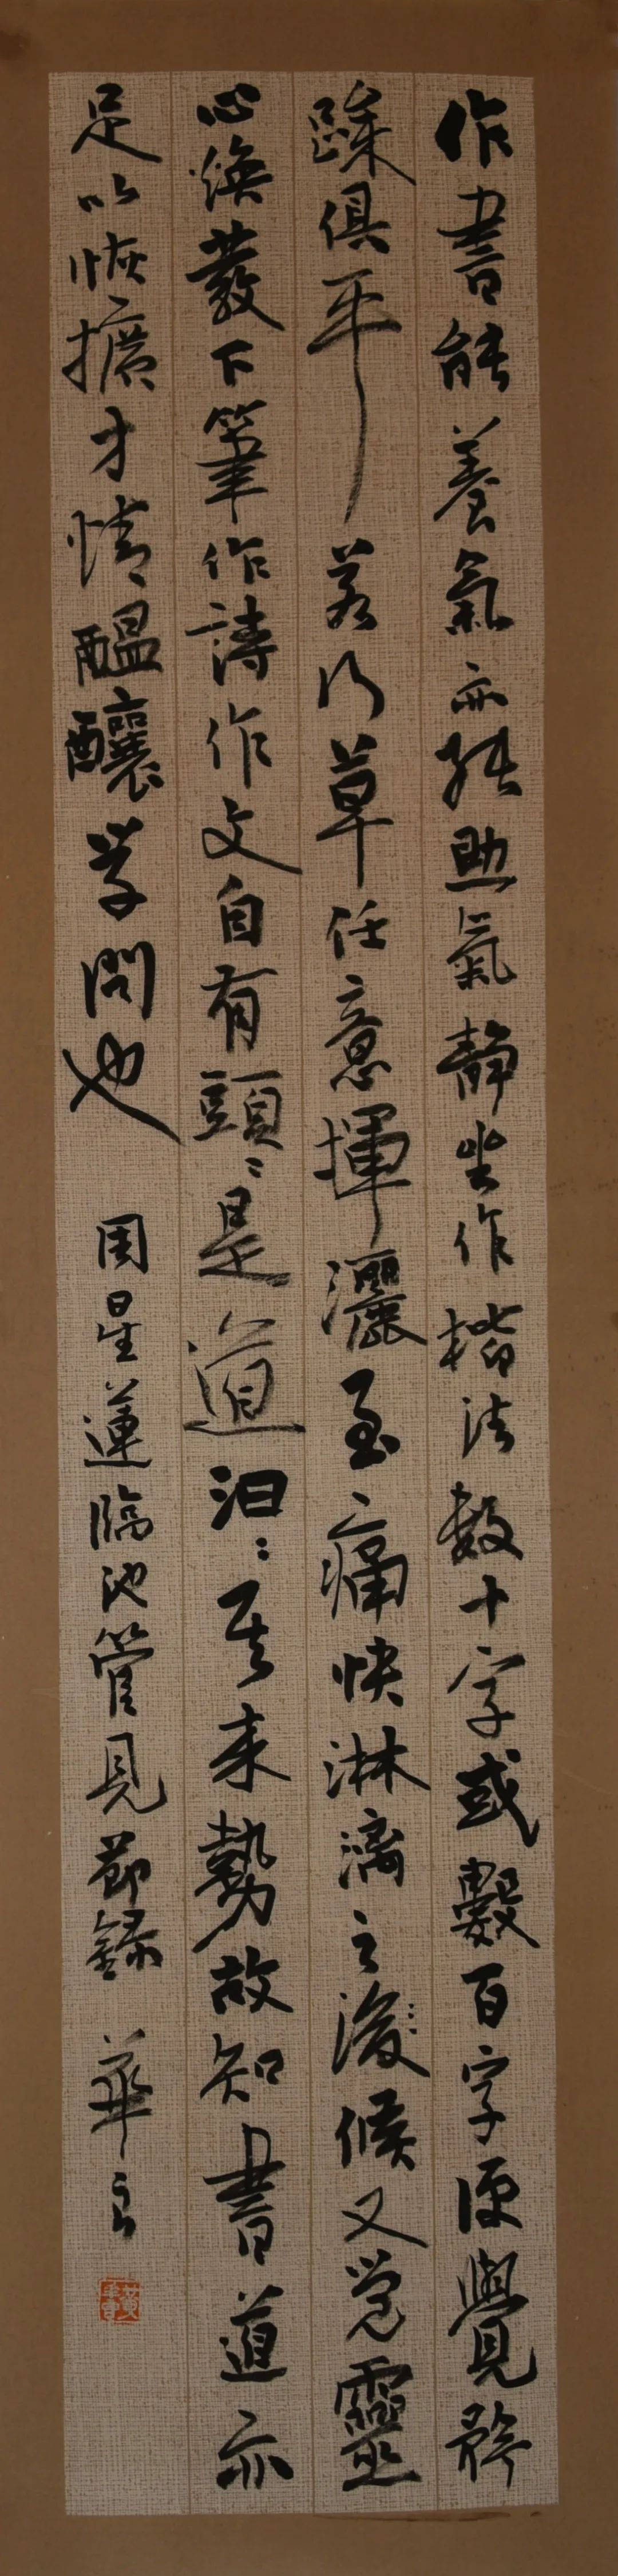 作書能養氣亦能助氣靜坐作楷法數十字或數百字便覺矜
躁俱平若行草任意揮灑至痛快淋漓之後候又覺靈
心煥發下筆作詩作文自有頭〻是道汩〻其来勢故知書道亦
足以恢擴才情醞釀学問也 周星蓮臨池管見節録 華